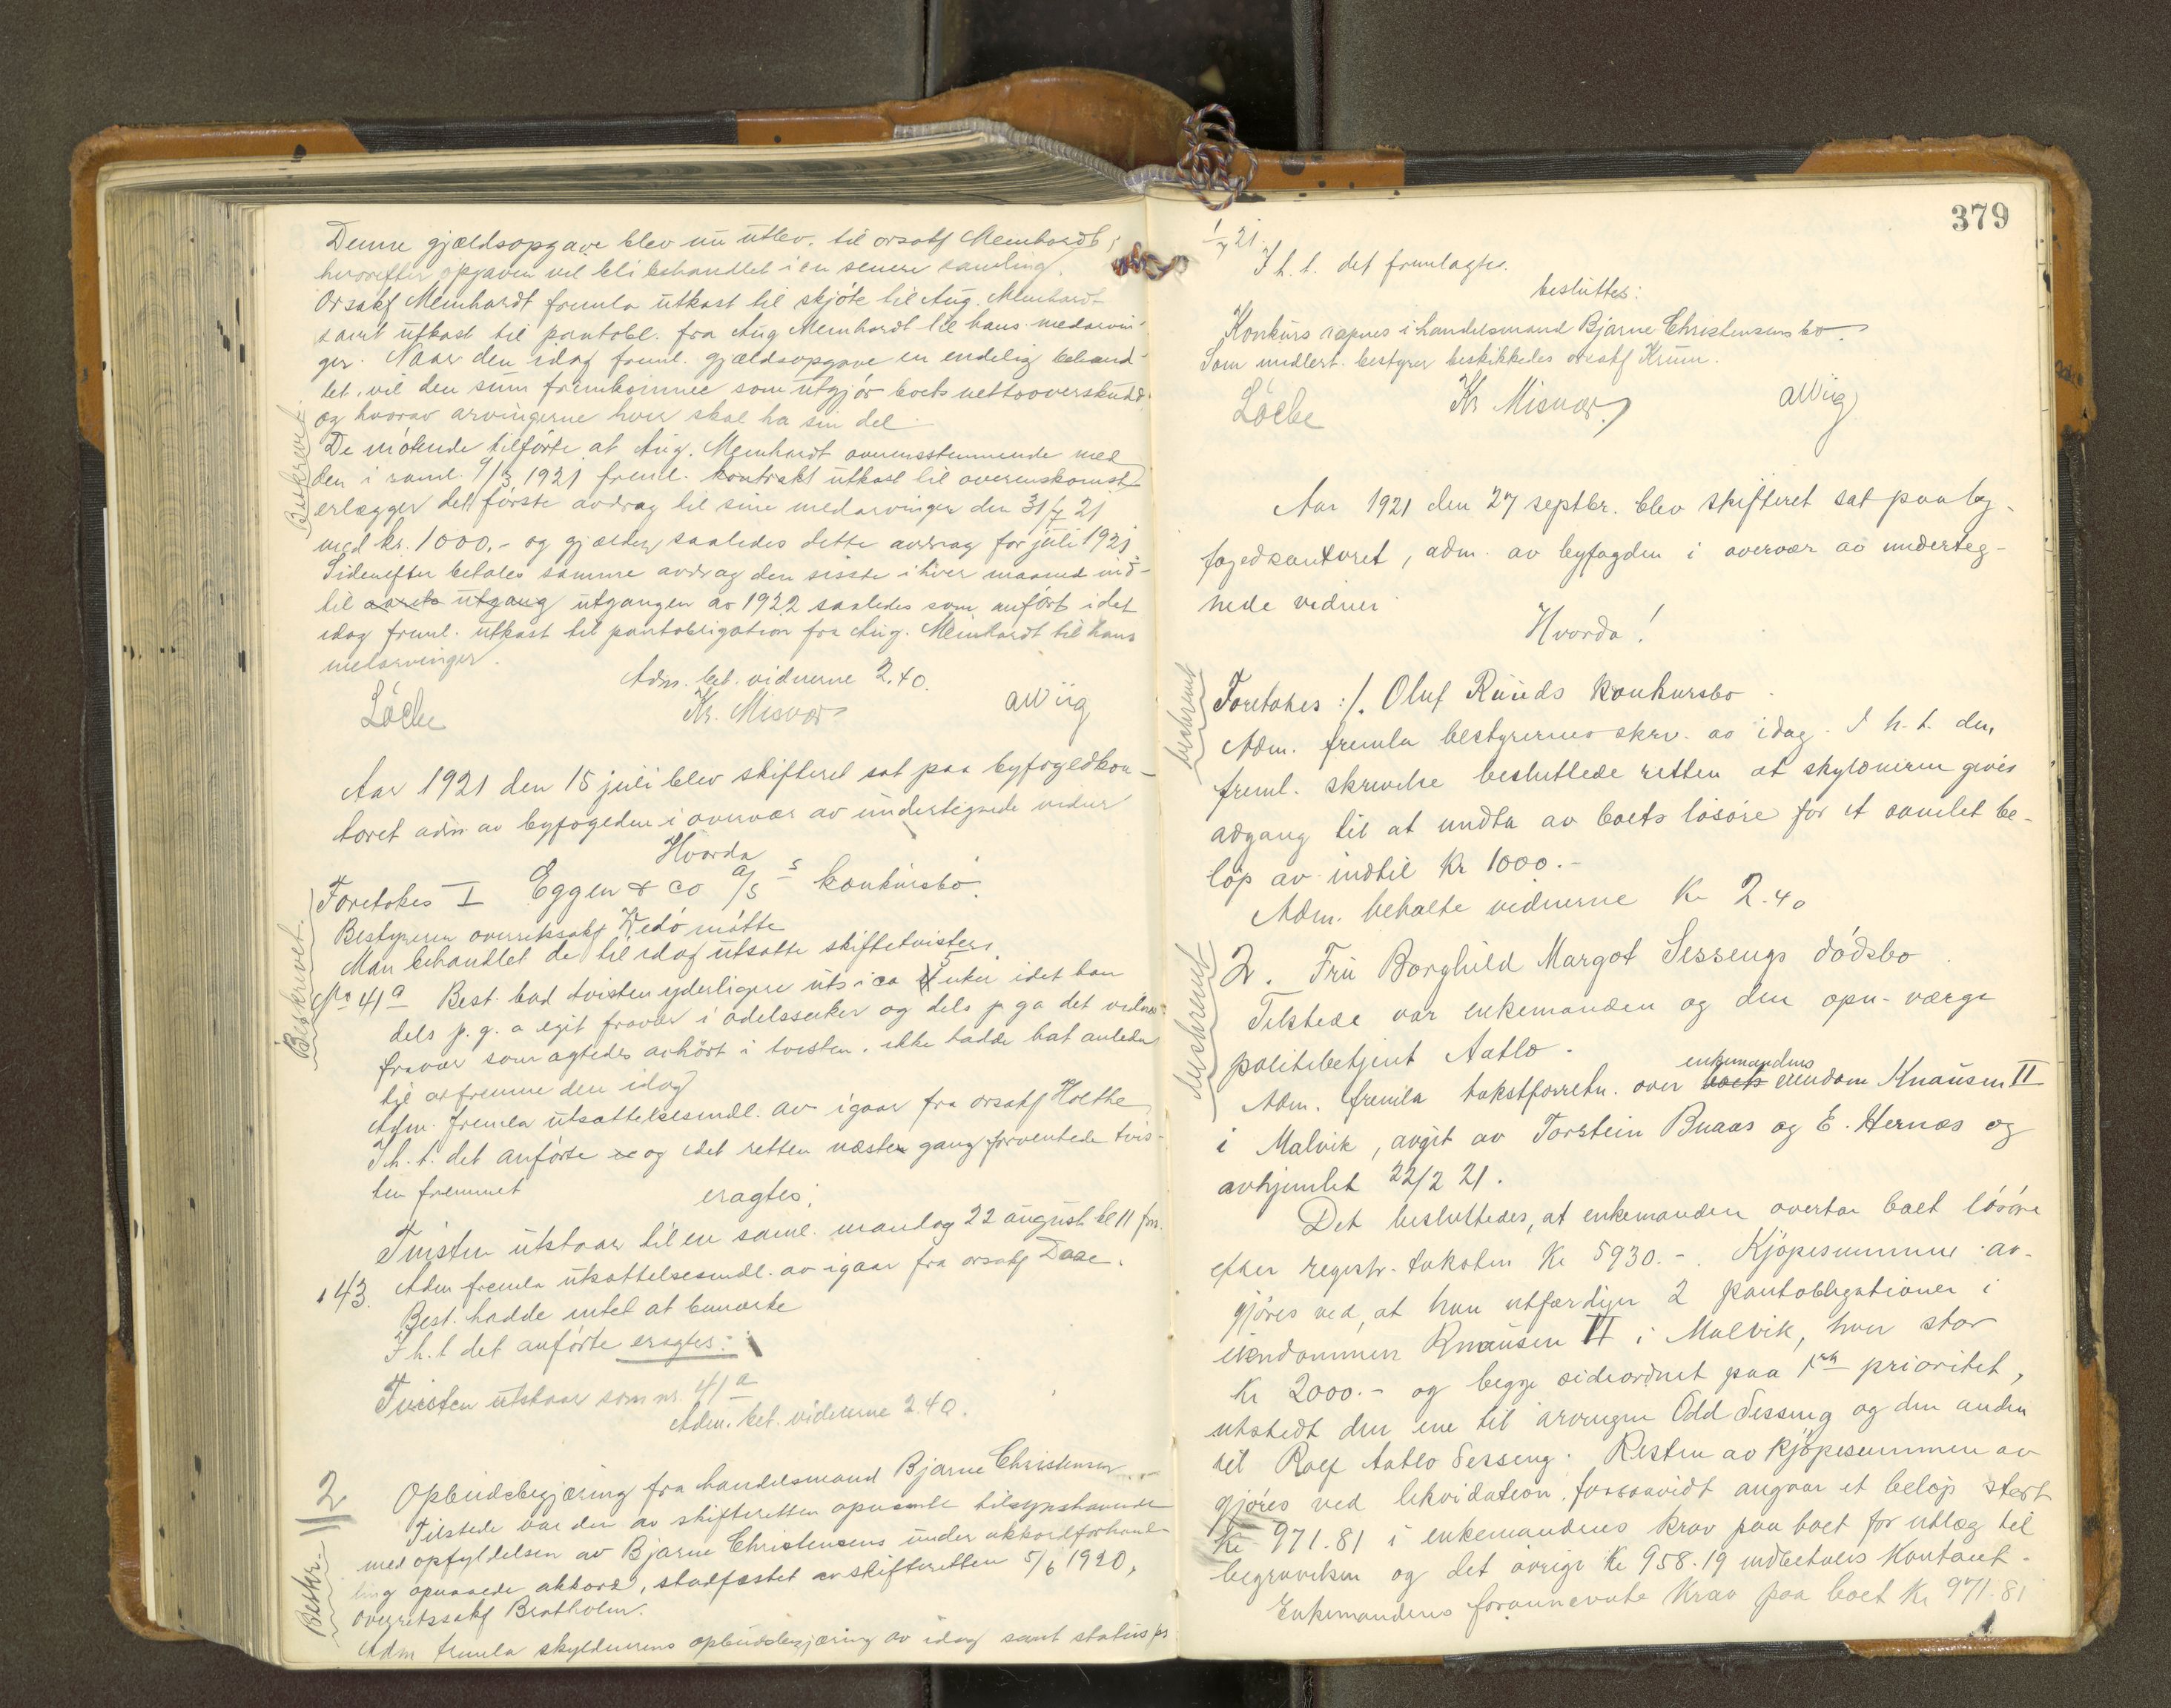 Denne gjældsopgave blev nu utlev. til orsakf Meinhardt,
hvorefter opgaven vil bli behandlet i en senere samling.
Orsakf Meinhardt fremla utkast til skjöte til Aug. Meinhardt
samt utkast til pantobl. fra Aug Meinhardt til hans medarvin-
ger. Naar den idag freml. gjældsopgave er endelig behand-
let, vil den sum fremkomme som utgjör boets nettooverskudd
og hvorav arvingerne hver skal ha sin del
Beskrevet.
De mötende tilförte at Aug. Meinhardt overensstemmende med
den i saml. 9/3 1921 freml. kontrakt utkast til overenskomst
erlægger det förste avdrag til sine medarvinger den 31/7 21
med kr. 1000,- og gjælder saaledes dette avdrag for juli 1921
Sidenefter betales samme avdrag den sisste i hver maaned ind-
til aarets utgang utgangen av 1922 saaledes som anfört i det
idag freml. utkast til pantobligation fra Aug. Meinhardt til hans
medarvinger.
Adm. bet. vidnerne 2.40.
Löche Kr. Misvær AWiig
Aar 1921 den 15 juli blev skifteret sat paa byfogedkon-
toret adm av byfogeden i overvær av undertegnede vidner
Hvorda
Foretokes I Eggen & co a/s s konkursbo.
Beskrevet.
Bestyreren overretssakf Kedö mötte
Man behandlet de til idag utsatte skiftetvister.
No 41a Best. bad tvisten yderligere uts i ca 5 uker idet han
dels p. g. a eget fravær i odelssaker og dels p ga det vidnes
fravær som agtedes avhört i tvisten, ikke hadde hat anledn
til at fremme den idag
Adm. fremla utsættelsesmdl. av igaar fra orsakf Hoethe
I h. t. det anförte og idet retten næste gang forventede tvis-
ten fremmet
eragtes:
Tvisten utstaar til en saml. mandag 22 august kl 11 fm.
143. Adm fremla utsættelsesmdl. av igaar fra orsakf Daae.
Best. hadde intet at bemærke
I h. t det anförte eragtes:
Tvisten utstaar som nr. 41a
Adm. bet. vidnerne 2.40.
2 Opbudsbegjæring fra handelsmand Bjarne Christensen
Beskr.
Tilstede var den av skifteretten opnævnte tilsynshavende
med opfyldelsen av Bjarne Christensens under akkordforhand-
ling opnaaede akkord, stadfæstet av skifteretten 5/6 1920,
overretssakf Bertholm.
Adm fremla skyldnerens opbudsbegjæring av idag samt status pr
379
1/7 21.
I h. t. det fremlagte
besluttes:
Konkurs aapnes i handelsmand Bjarne Christensens bo
Som midlert. bestyrer beskikkedes orsakf Krum.
Löche Kr Misvær AWiig
Aar 1921 den 27 septbr. blev skifteret sat paa by-
fogedkontoret, adm. av byfogden i overvær av underteg-
nede vidner
Hvorda!
beskrevet
Foretokes :/. Oluf Ruuds konkursbo
Adm. fremla bestyrernes skrv. av idag. I h. t. den
freml. skrivelse besluttede retten at skyldneren gives
adgang til at undta av boets lösöre for et samlet be-
löp av indtil Kr 1000.-
Adm. betalte vidnerne Kr 2.40
beskrevet
2. Fru Borghild Margot Sessengs dödsbo
Tilstede var enkemanden og den opn. værge
politibetjent Aatlo.
enkemandens
Adm. fremla takstforretn. over boets eiendom Knausen II
i Malvik, avgit av Torstein Buaas og E. Hernæs og
avhjemlet 22/2 21.
Det besluttedes, at enkemanden overtar boet lösöre
efter registr. taksten Kr 5930.-. Kjöpesummen av-
gjöres ved, at han utfærdiger 2 pantobligationer i
eiendommen Knausen II i Malvik, hver stor
Kr 2000.- og begge sideordnet paa 1ste prioritet,
utstedt den ene til arvingen Odd Sesseng og den anden
til Rolf Aatlo Sesseng. Resten av kjöpesummen av
gjöres ved likvidation, forsaavidt angaar et belöp stort
Kr 971.81 i enkemandens krav paa boet for utlæg til
begravelsen og det övrige Kr 958.19 indbetales kontant.
Enkemandens forannævnte krav paa boet Kr 971.81